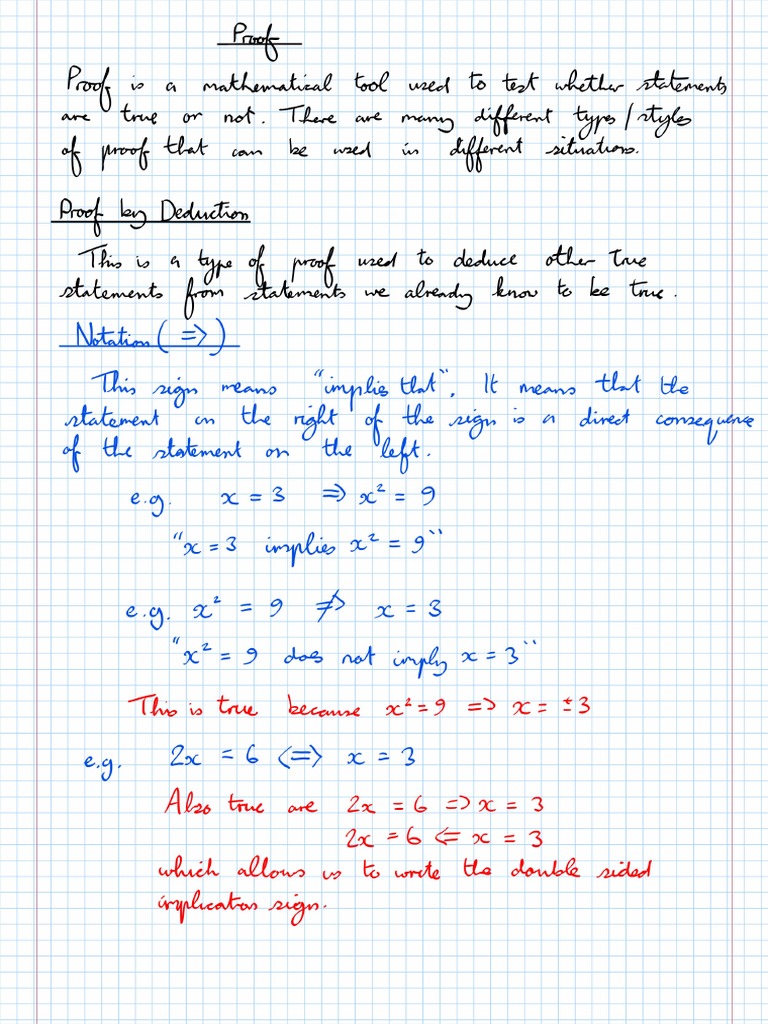 Proof
Proof is a mathematical tool used to test whether statements
are true or not. There are many different types/styles
of proof that can be used in different situations.
Proof by Deduction
This is a type of proof used to deduce other true
statements from statements we already know to be true.
Notation (=>)
This sign means "implies that". It means that the
statement on the right of the sign is a direct consequence
of the statement on the left.
e.g. x = 3 => x² = 9
"x = 3 implies x² = 9"
e.g. x² = 9 ≠> x = 3
"x² = 9 does not imply x = 3"
This is true because x² = 9 => x = ±3
e.g. 2x = 6 <=> x = 3
Also true are 2x = 6 => x = 3
2x = 6 <= x = 3
which allows us to write the double sided
implication sign.